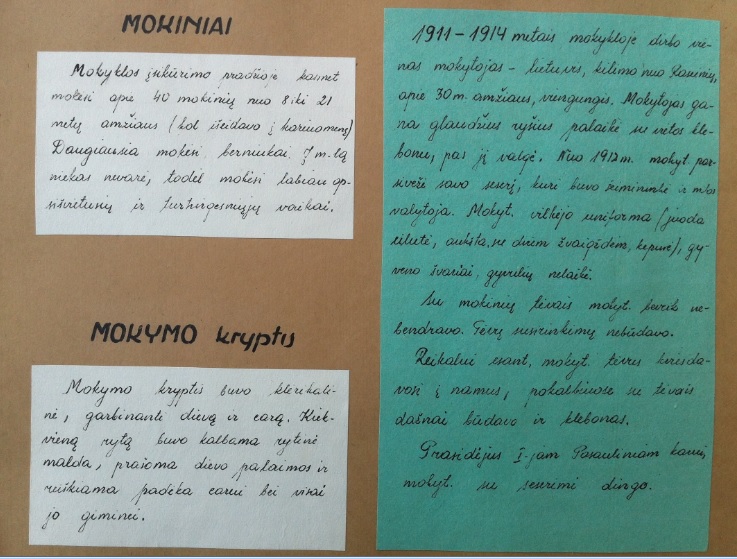 MOKINIAI
Mokyklos įsikūrimo pradžioje kasmet
mokėsi apie 40 mokinių nuo 8 iki 21
metų amžiaus (kol išeidavo į kariuomenę)
Daugiausia mokėsi berniukai. Į m-lą
niekas nevarė, todėl mokėsi labiau ap-
sišvietusių ir turtingesniųjų vaikai.
MOKYMO kryptis
Mokymo kryptis buvo klerikali-
nė, garbinanti dievą ir carą. Kiek-
vieną rytą buvo kalbama rytinė
malda, prašoma dievo palaimos ir
reiškiama padėka carui bei visai
jo giminei.
1911-1914 metais mokykloje dirbo vie-
nas mokytojas - lietuvis, kilimo nuo Raseinių,
apie 30 m. amžiaus, viengungis. Mokytojas ga-
na glaudžius ryšius palaikė su vietos kle-
bonu, pas jį valgė. Nuo 1912 m. mokyt. par-
sivežė savo seserį, kuri buvo šeimininkė ir m-los
valytoja. Mokyt. vilkėjo uniforma (juoda
eilutė, aukšta, su dviem žvaigždėm, kepurė), gy-
veno švariai, gyvulių nelaikė.
Su mokinių tėvais mokyt. beveik ne-
bendravo. Tėvų susirinkimų nebūdavo.
Reikalui esant, mokyt. tėvus kviesda-
vosi į namus, pokalbiuose su tėvais
dažnai būdavo ir klebonas.
Prasidėjus I-jam Pasauliniam karui,
mokyt. su seserimi dingo.